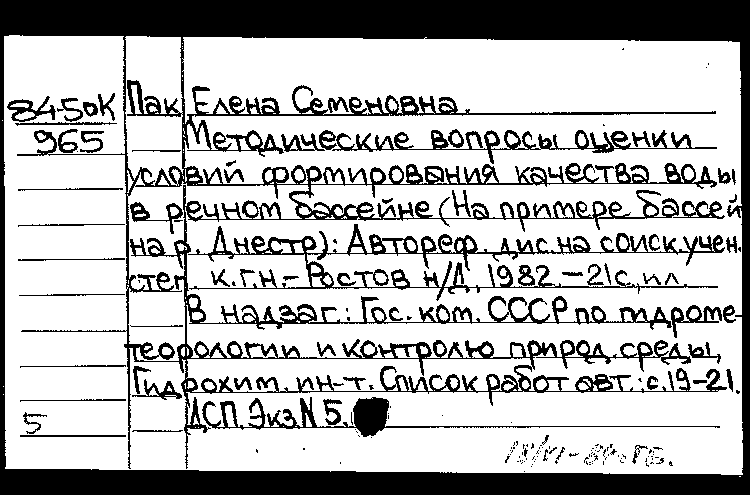 84-5ок Пак Елена Семеновна.
965 Методические вопросы оценки
условий формирования качества воды
в речном бассейне (На примере бассей
на р. Днестр): Автореф. дис. на соиск. учен.
степ. к.г.н. - Ростов н/Д, 1982. - 21с., ил.
В надзаг.: Гос. ком. СССР по гидроме-
теорологии и контролю природ. среды,
Гидрохим. ин-т. Список работ авт.: с. 19-21.
5 ДСП. Экз. N 5.